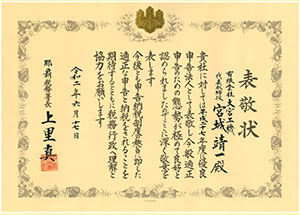 表敬状
有限会社大宮工機
代表取締役
宮城靖一殿
貴社に対しては平成二十七年度に優良
申告法人として表敬し今般適正
申告のための態勢が極めて良好と
認められましたのでここに深く敬意を
表します
今後とも申告納税制度の趣旨に即した
適正な申告と納税をされることを
期待するとともに税務行政へ理解と
協力をお願いします
令和二年六月十七日
那覇税務署長
上里真